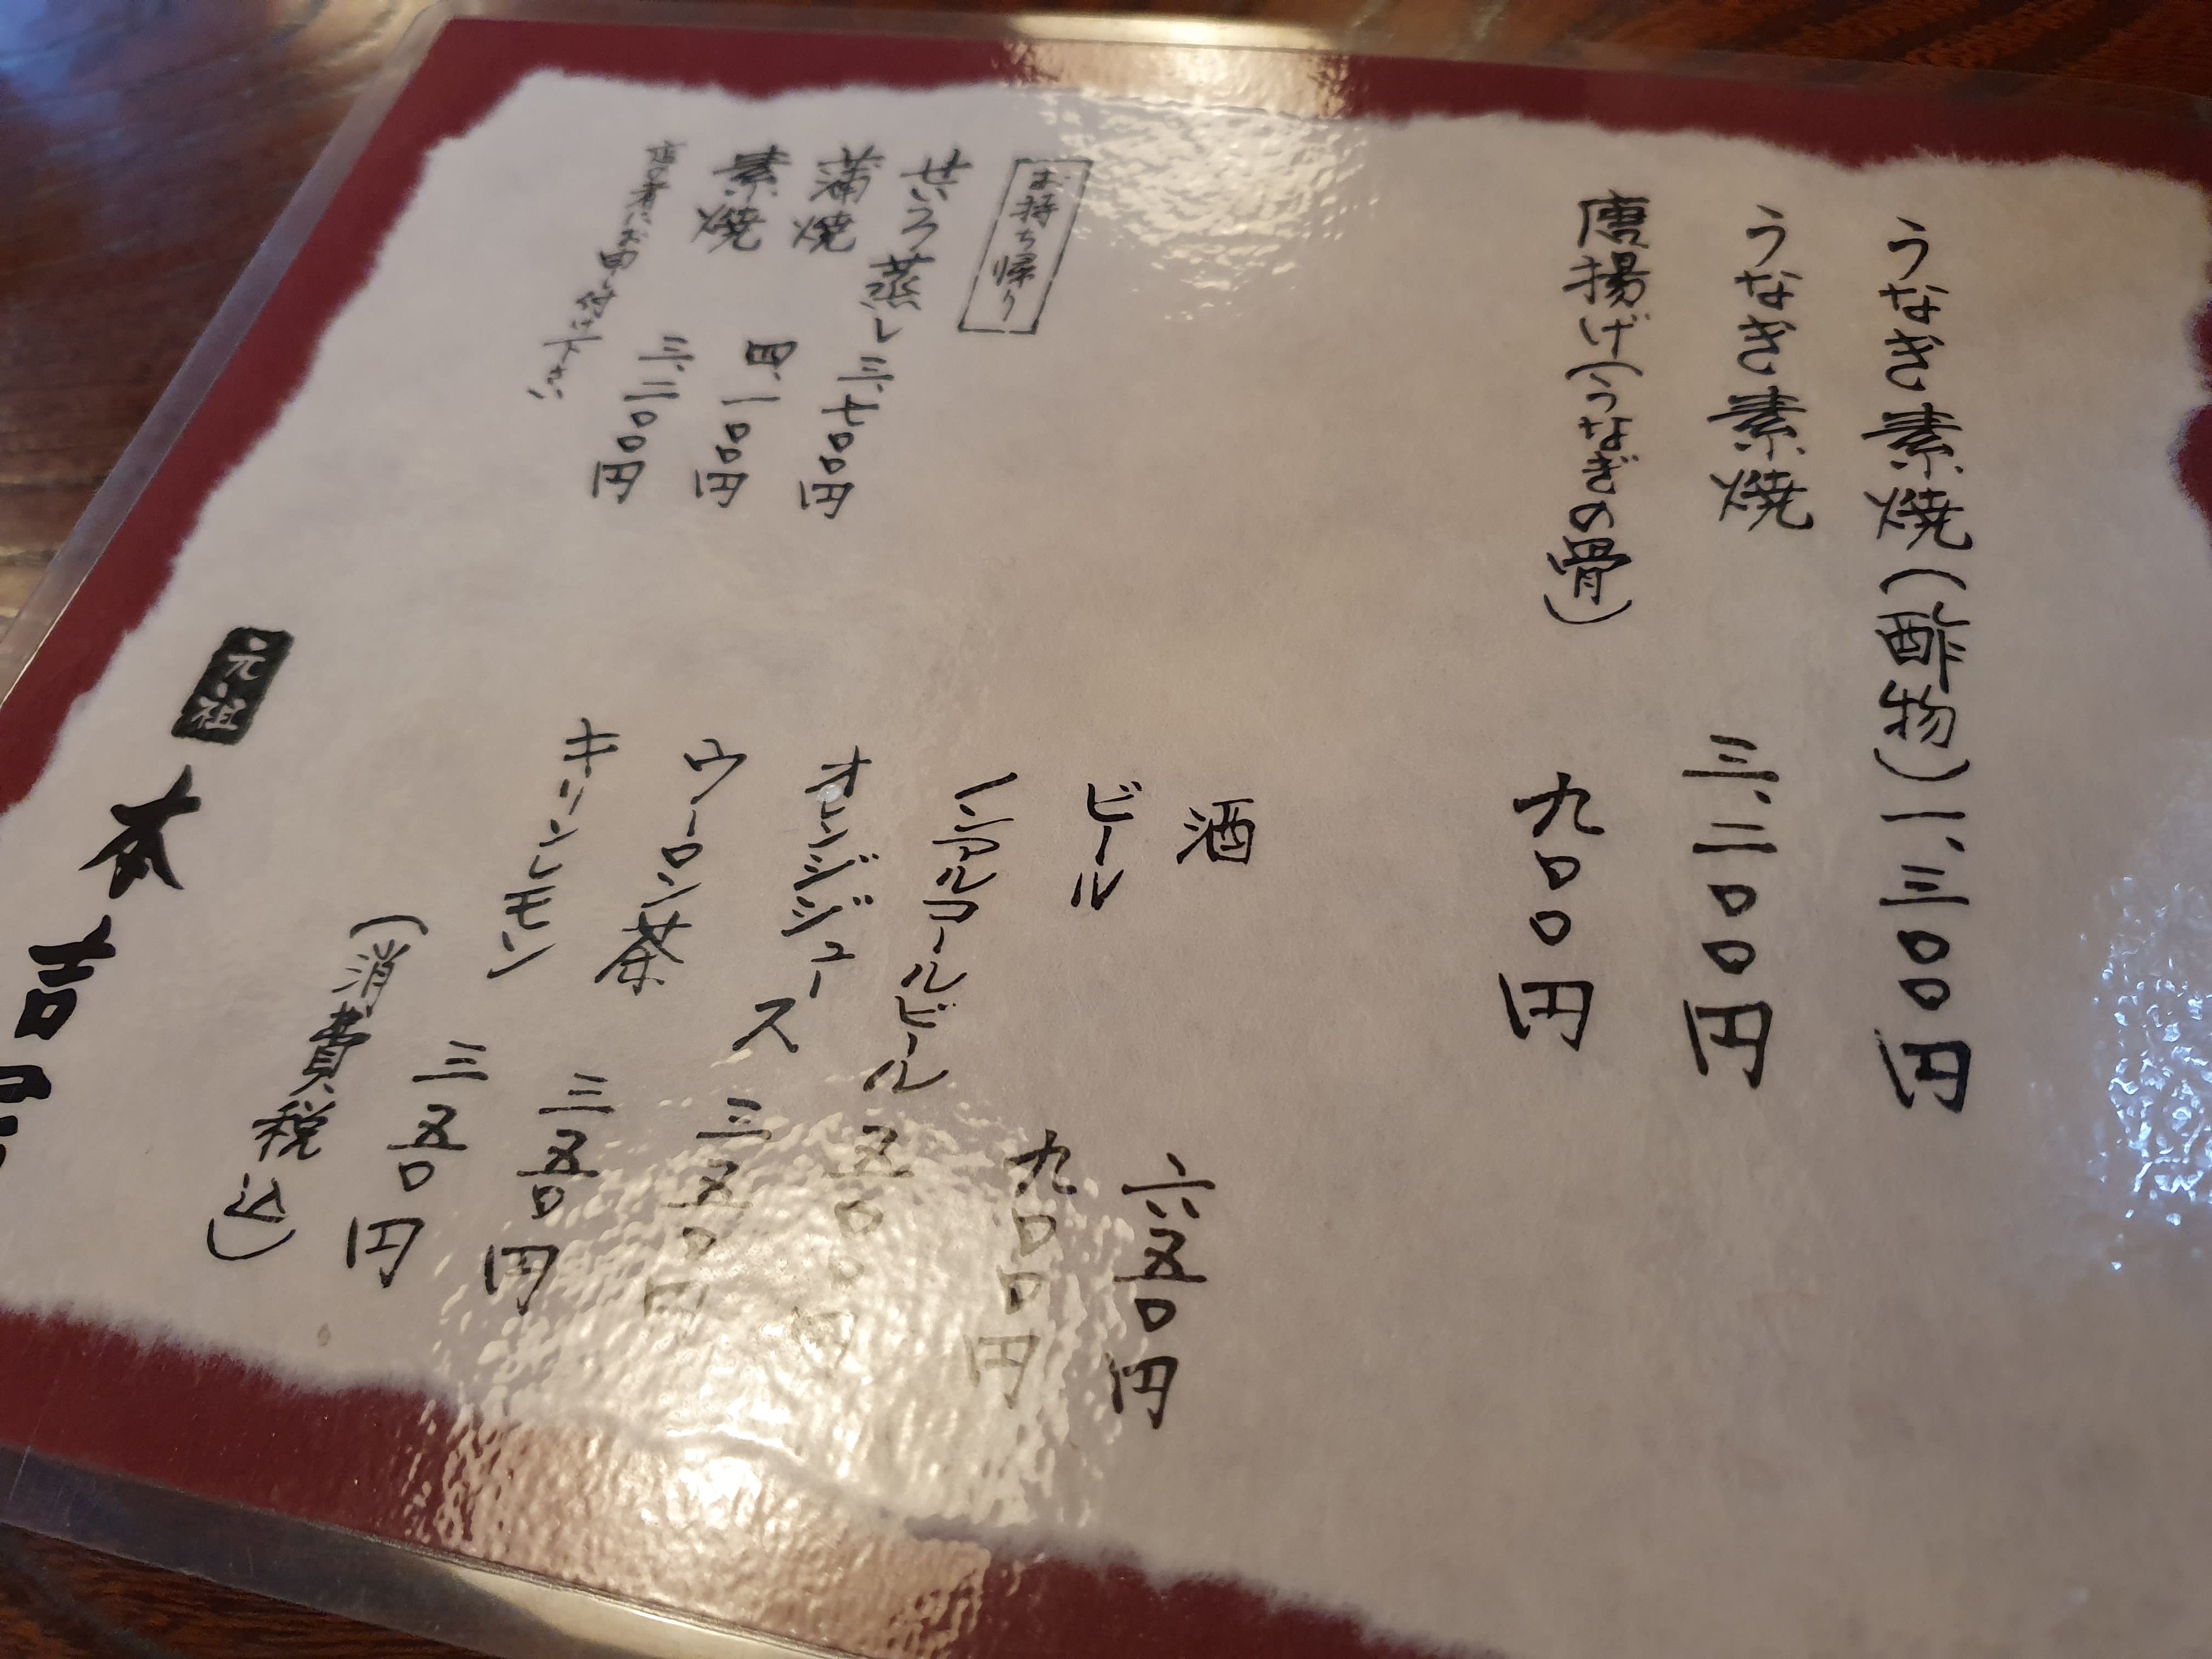 うなぎ素焼(酢物)一、三〇〇円
うなぎ素焼 三、二〇〇円
唐揚げ(うなぎの骨) 九〇〇円
酒 六五〇円
ビール 九〇〇円
ノンアルコールビール 五〇〇円
オレンジジュース 三五〇円
ウーロン茶 三五〇円
キリンレモン 三五〇円
(消費税込)
お持ち帰り
せいろ蒸し 三、七〇〇円
蒲焼 四、一〇〇円
素焼 三、二〇〇円
店の者にお申し付け下さい
元祖 本吉